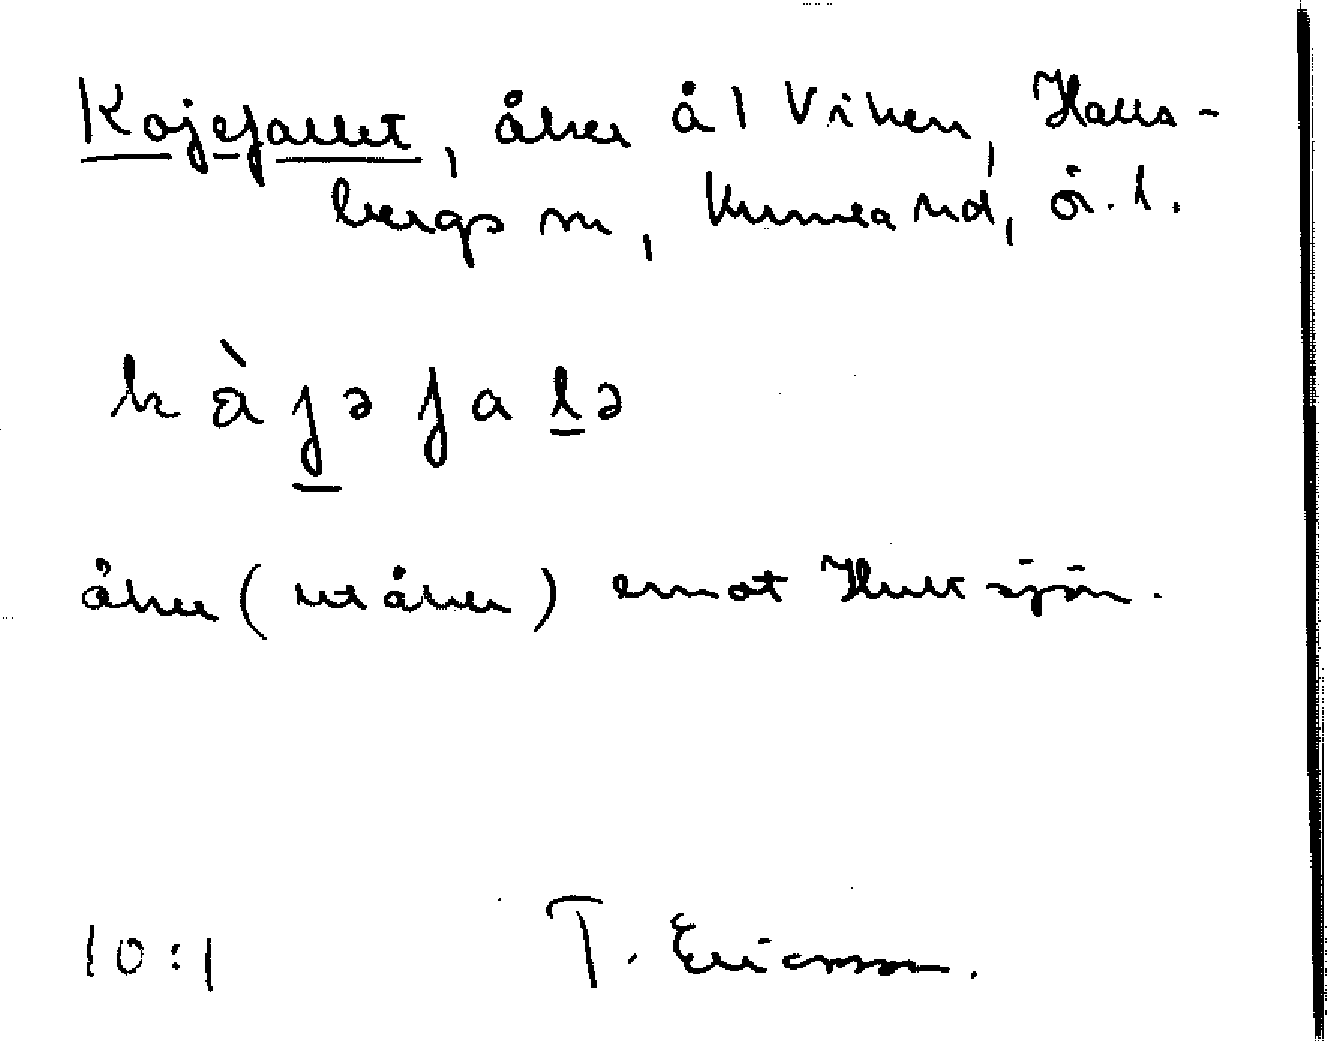 Kajefallet, åker å 1 Viken, Halls-
bergs sn, Kumla hd, ö. l.
kàjəfalə
åker (utåker) emot Hultsjön.
10:1 T. Ericsson.